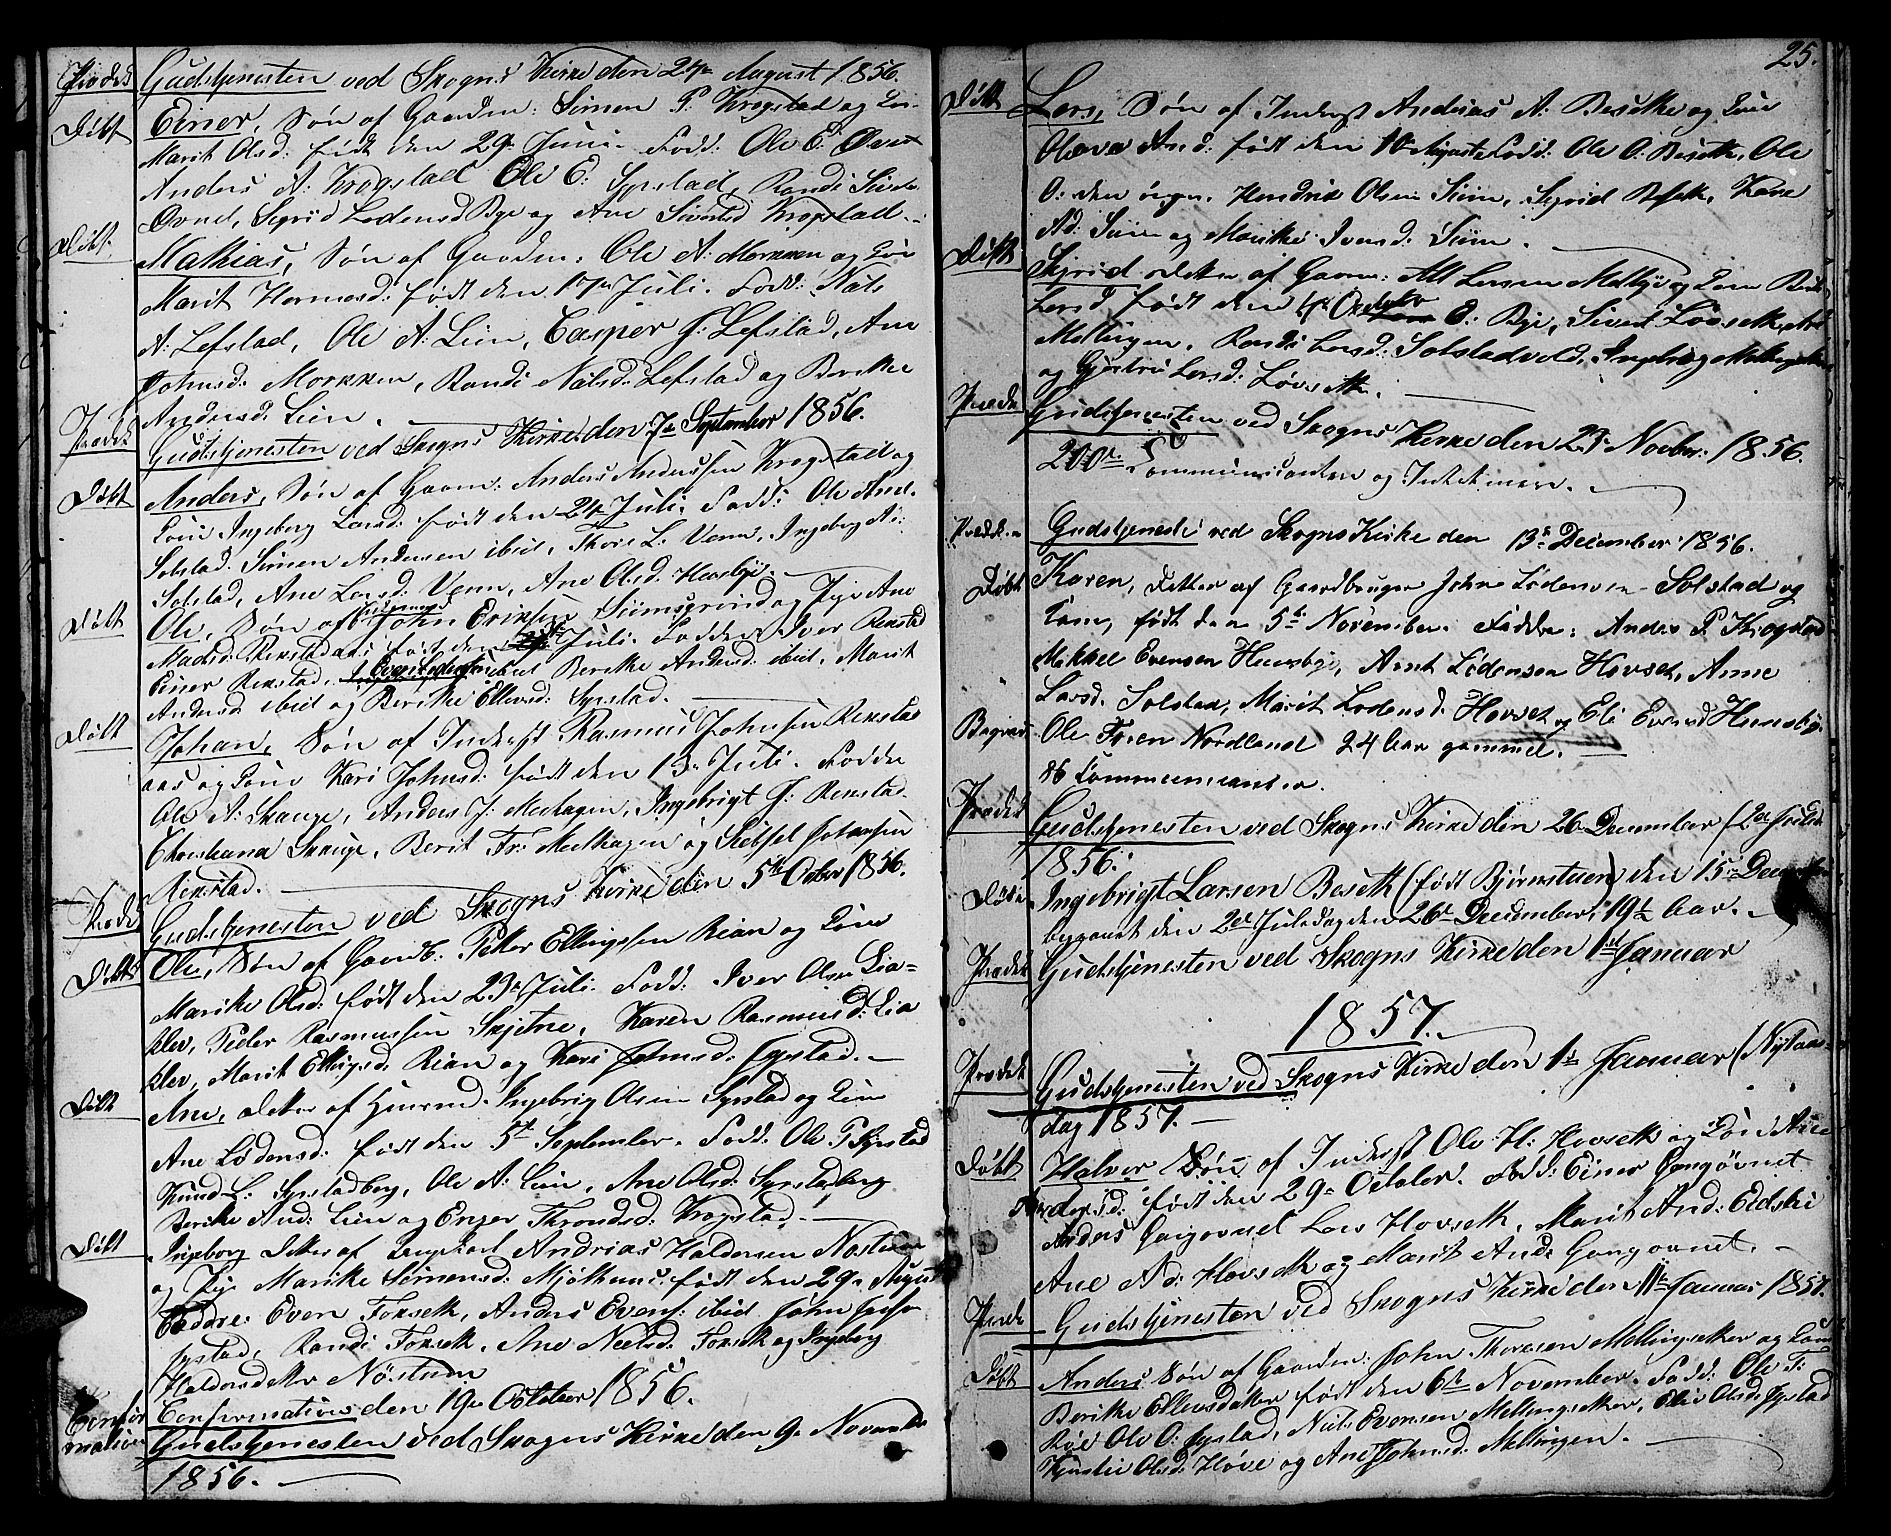 Prædek Gudstjenesten ved Skogns Kirke den 24de August 1856.
Döbt Einer, Sön af Gaardm: Simen P. Krogstad og Kone
Marit Olsd: födt den 29de Juni. Fadd: Ole E.
Anders A: Krogstad Ole E: Syrstad, Randi
Sigrid Lodensd Bye og Ane Sivertsd Krogstad.
Döbt Mathias, Sön af Gaardm: Ole A: Morkken og Kone
Marit Hermosd: födt den 17de Juli. Fadd: Nils
A. Lefstad, Ole A: Lien, Casper J: Lefstad, Ane
Johnsd: Morkken, Randi Nilsd: Lefstad og Berethe
Andersd: Lien.
Prædek Gudstjenesten ved Skogns Kirke den 7de September 1856.
Döbt Anders, Sön af Gaardm: Anders Anderssen Krogstad og
Kone Ingeborg Larsd: födt den 24de Juli. Fadd: Ole And.
Solstad. Simen Andersen ibid, Thore L. Venn, Ingeborg A:
Solstad, Ane Larsd: Venn, Ane Olsd. Hersbye.
Döbt Ole, Sön af John Eriksen Siimsgrind og Pige Ane
Madsd: Rikstadaas födt den Juli. Faddere Iver Rikstad
Einer Rikstad, Berethe Andersd: ibid, Marit
Andersd ibid og Berethe Ellevsd: Syrstad.
Döbt Johan, Sön af Inderst Rasmus Johnsen Rikstad
aas og Kone Kari Johnsd: födt den 13de Juli. Faddere
Ole A: Skauge, Anders J. Meelhagen, Ingebrigt J: Rikstad.
Christiana Skauge, Berit Fr: Meelhagen og Johansen
Rikstad.
Prædek Gudstjenesten ved Skogns Kirke den 5te Octbr 1856.
Döbt Ole, Sön af Gaardb: Peder Ellingssen Rian og Kone
Marike Olsd: födt den 23de Juli. Fadd: Iver Olsen Lia-
klev, Peder Rasmussen Skjetne, Karen Rasmusd: Lia
klev, Marit Ellingsd: Rian og Kari Johnsd: Syrstad.
Döbt Ane, Datter af Huusmd. Ingebrigt Olsen Syrstad og Kone
Ane Lödensd: födt den 5te September. Fadd. Ole P. Syrstad
Knud L: Syrstadberg, Ole A. Lien, Ane Olsd: Syrstadberg
Berithe And: Lien og Enger Throndsd: Krogstad.
Döbt Ingeborg Datter af Ungkarl Andrias Haldorsen Nöstum
og Pige Marike Simensd: Mjölhuus: födt den 29de August
Faddre: Even Forsetk, Anders Evens: ibid John Joh:
Syrstad, Randi Forsetk, Ane Nielsd: Forsetk og Ingeborg
Haldorsdatter Nöstum
Confir- Confirmation den 19de October 1856.
mation Gudstjenesten ved Skogns Kirke den 9de November
1856.
25.
Döbt Lars, Sön af Inderst Andrias A: Besetke og Kone
Olava And: födt den 10de Auguste Fadd: Ole O: Besetk, Ole
O: den yngre. Hendrik Olsen Siim, Sigrid Besetk, Kare
Ad: Siim og Marike Iversd: Siim.
Döbt Sigrid Datter af Gaardm: Larsen Melbye og Kone
Larsd födt den October O: Bye, Sivert Lövsetk,
Mellingen, Randi Larsd: Solstadvold, Ingebrig
og Gjertru Larsd: Lövsetk.
Prædk Gudstjenesten ved Skogns Kirke den 23de Novbr: 1856.
200de Communicanter og Intet mere.
Prædiken Gudstjeneste ved Skogns Kirke den 13de December 1856.
Döbt Karen, Datter af Gaardbruger John Lödensen Solstad og
Kone, födt den 5te November. Faddere: Anders P. Krogstad
Mikkel Evensen Huusbye, Arnt Lödensen Hovset, Anne
Larsd. Solstad, Marit Lodensd. Hovset og Eli Evensd Huusby.
Begrav: Ole Troen Nordland 24 Aar gammel.
86 Communicanter.
Prædek Gudstjenesten ved Skogns Kirke den 26de December (2den Juledag
1856.
Döde Ingebrigt Larsen Besetk (födt Björnstuen) den 15de December
begravet den 2den Juledag den 26de December, 19½ Aar.
Prædek Gudstjenesten ved Skogns Kirke den 1ste Januar
1857.
Prædek Gudstjenesten ved Skogns Kirke den 1ste Januar (Nytaars-
dag 1857.
Döbt Halvor Sön af Inderst Ole H: Hovsetk og Kone Ane
Andersd: födt den 29de October. Fadd: Einer Gangövnet
Anders Gangovnet Lars Hovsetk, Marit And: Eidslie
Ane Ad: Hovsetk og Marit And: Gangovnet.
Prædk Gudstjenesten ved Skogns Kirke den 11te Januar 1857.
Döbt Anders Sön af Gaardm: John Thoresen Mellingsetker og Kone
Berithe Ellevsdatter födt den 6te November. Fadd: Ole T:
Röe Ole O: Syrstad, Nils Evensen Mellingsetker, Olsd: Syrstad
Kjerstie Olsd: Höve og Ane Johnsd: Mellingen.